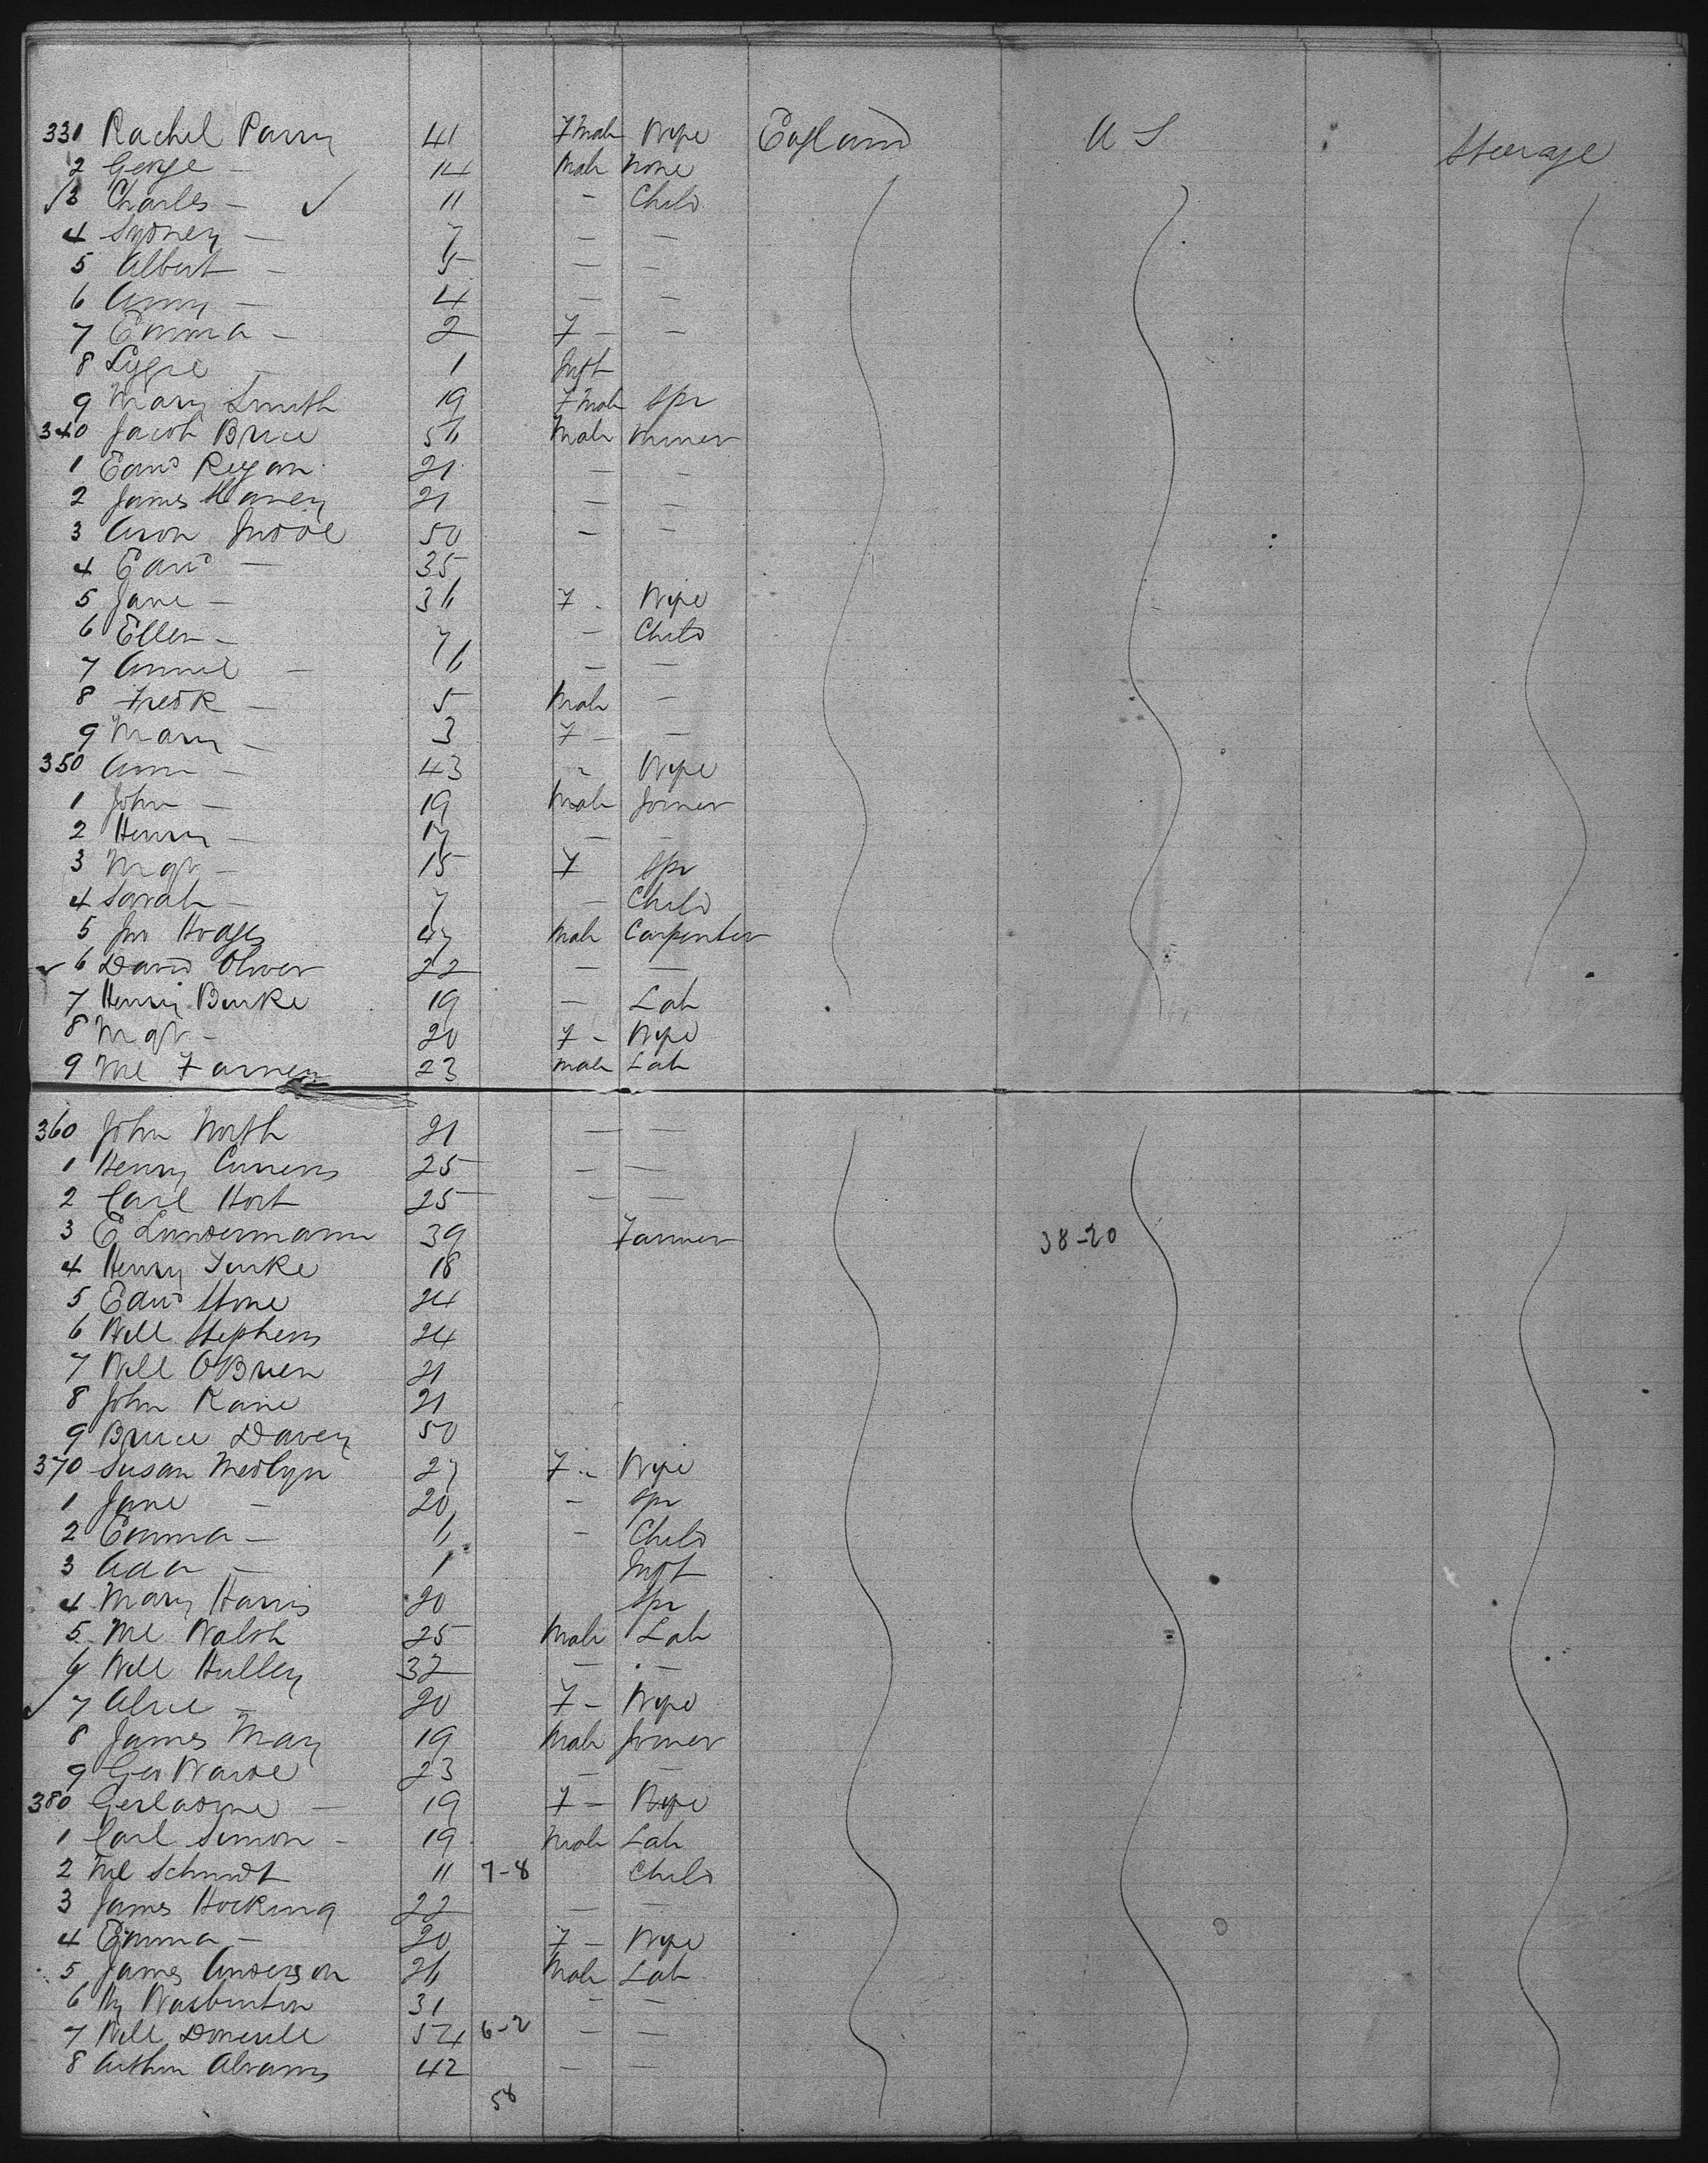 331 Rachel Parry 41 Fmale Wife England U S Steerage
2 George — 14 Male None
✓3 Charles — ✓ 11 — Child
4 Sydney — 7 — —
5 Albert — 5 — —
6 Amy — 4 — —
7 Emma — 2 F — —
8 Lyzie — 1 Inft
9 Mary Smith 19 Fmale Spr
340 Jacob Brice 56 Male Miner
1 Edwd Regan 21 — —
2 James Haney 21 — —
3 Aron 50 — —
4 Edwd — 35
5 Jane — 36 F - Wife
6 Ellen — 7 — Child
7 Annie — 6 — —
8 Fredk — 5 Male —
9 Mary — 3 F — —
350 Ann — 43 — Wife
1 John — 19 Male Joiner
2 Henry — 17 — —
3 Mgt — 15 F Spr
4 Sarah — 7 — Child
5 Jno Hodges 47 Male Carpenter
✓ 6 David Oliver 22 — —
7 Henry Burke 19 — Lab
8 Mgt — 20 F - Wife
9 Ml Farney 23 Male Lab
360 John North 21 — —
1 Henry Currens 25 — —
2 Carl Hort 25 — —
3 E Lundermann 39 Farmer 38-20
4 Henry 18
5 Edwd Stone 24
6 Will Stephens 24
7 Will OBrien 21
8 John Kane 21
9 Bruce Davey 50
370 Susan Medlyn 27 F - Wife
1 Jane — 20 — Spr
2 Emma — 6 — Child
3 Ada — 1 Inft
4 Mary Harris 20 Spr
5 Ml Walsh 25 Male Lab
6 Will Hulley 32 — —
✓ 7 Alice — 20 F - Wife
8 James May 19 Male Joiner
9 Geo Warde 23 — —
380 — 19 F — Wife
1 Carl Simon - 19 Male Lab
2 Ml Schmidt 11 7-8 Child
3 James Hocking 22 — —
4 Emma — 20 F — Wife
5 James Anderson 26 Male Lab
6 Hy Washinton 31 — —
7 Will 54 6-2 — —
8 Arthur Abrams 42 — —
58